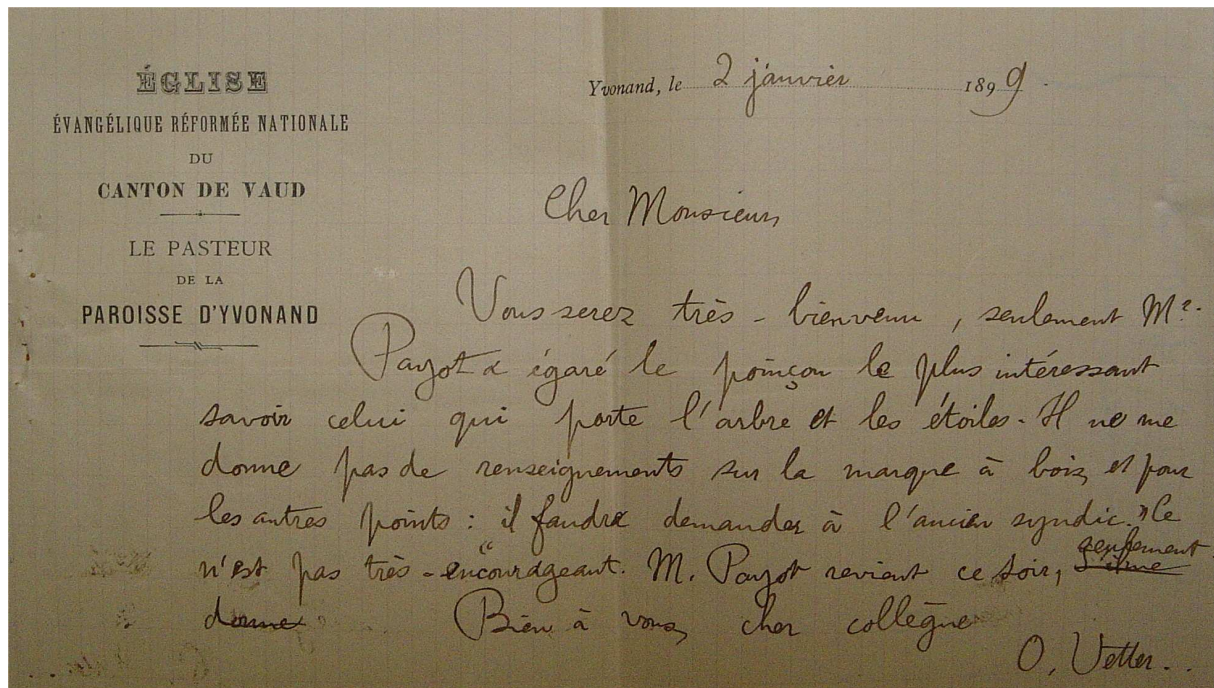 ÉGLISE
ÉVANGÉLIQUE RÉFORMÉE NATIONALE
DU
CANTON DE VAUD
LE PASTEUR
DE LA
PAROISSE D'YVONAND
Yvonand, le 2 janvier 1899
Cher Monsieur,
Vous serez très-bienvenu, seulement Mr.
Payot a égaré le poinçon le plus intéressant
savoir celui qui porte l'arbre et les étoiles. Il ne me
donne pas de renseignements sur la marque à bois, et pour
les autres points : "il faudra demander à l'ancien syndic." Ce
n'est pas très-encourageant. M. Payot revient ce soir, seulement
donne Bien à vous, cher collègue
O. Vetter.